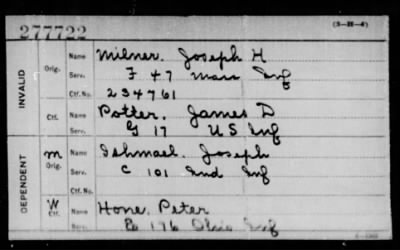 277722 (3-H-4)
INVALID
Orig. Name Milner. Joseph H
Serv. F 47 Mass Inf
Ctf. No. 234761
Ctf. Name Potter. James D
Serv. G 17 US Inf
DEPENDENT
m Orig. Name Ishmael. Joseph
Serv. C 101 Ind Inf
Ctf. No.
W Ctf. Name Hone. Peter
Serv. 176 Ohio Inf